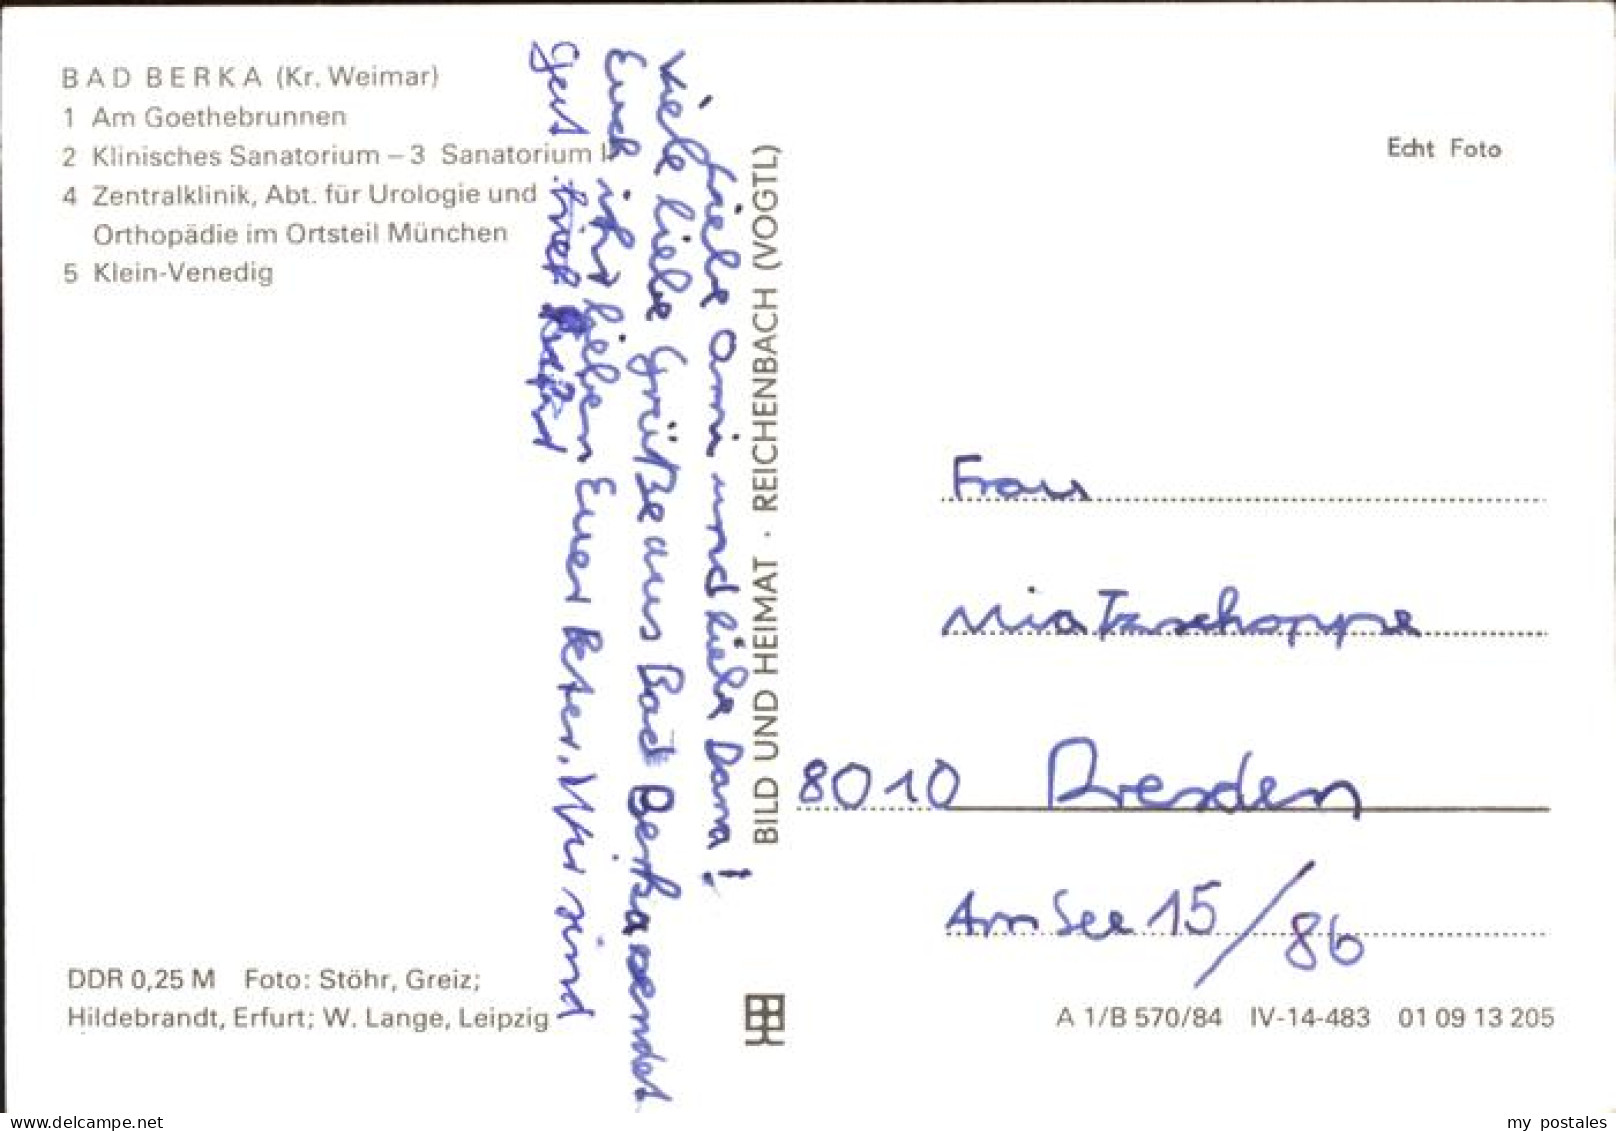 BAD BERKA (Kr. Weimar)
1 Am Goethebrunnen
2 Klinisches Sanatorium – 3 Sanatorium I
4 Zentralklinik, Abt. für Urologie und
Orthopädie im Ortsteil München
5 Klein-Venedig
Liebe Omi und liebe Dana!
Viele liebe Grüße aus Bad Berka sendet
Euch ihr lieben Euer Peter. Wir sind
gut
BILD UND HEIMAT · REICHENBACH (VOGTL)
Echt Foto
Frau
Mia Tzschoppe
8010 Dresden
Am See 15/86
DDR 0,25 M Foto: Stöhr, Greiz;
Hildebrandt, Erfurt; W. Lange, Leipzig
A 1/B 570/84 IV-14-483 01 09 13 205
delcampe.net
my_postales